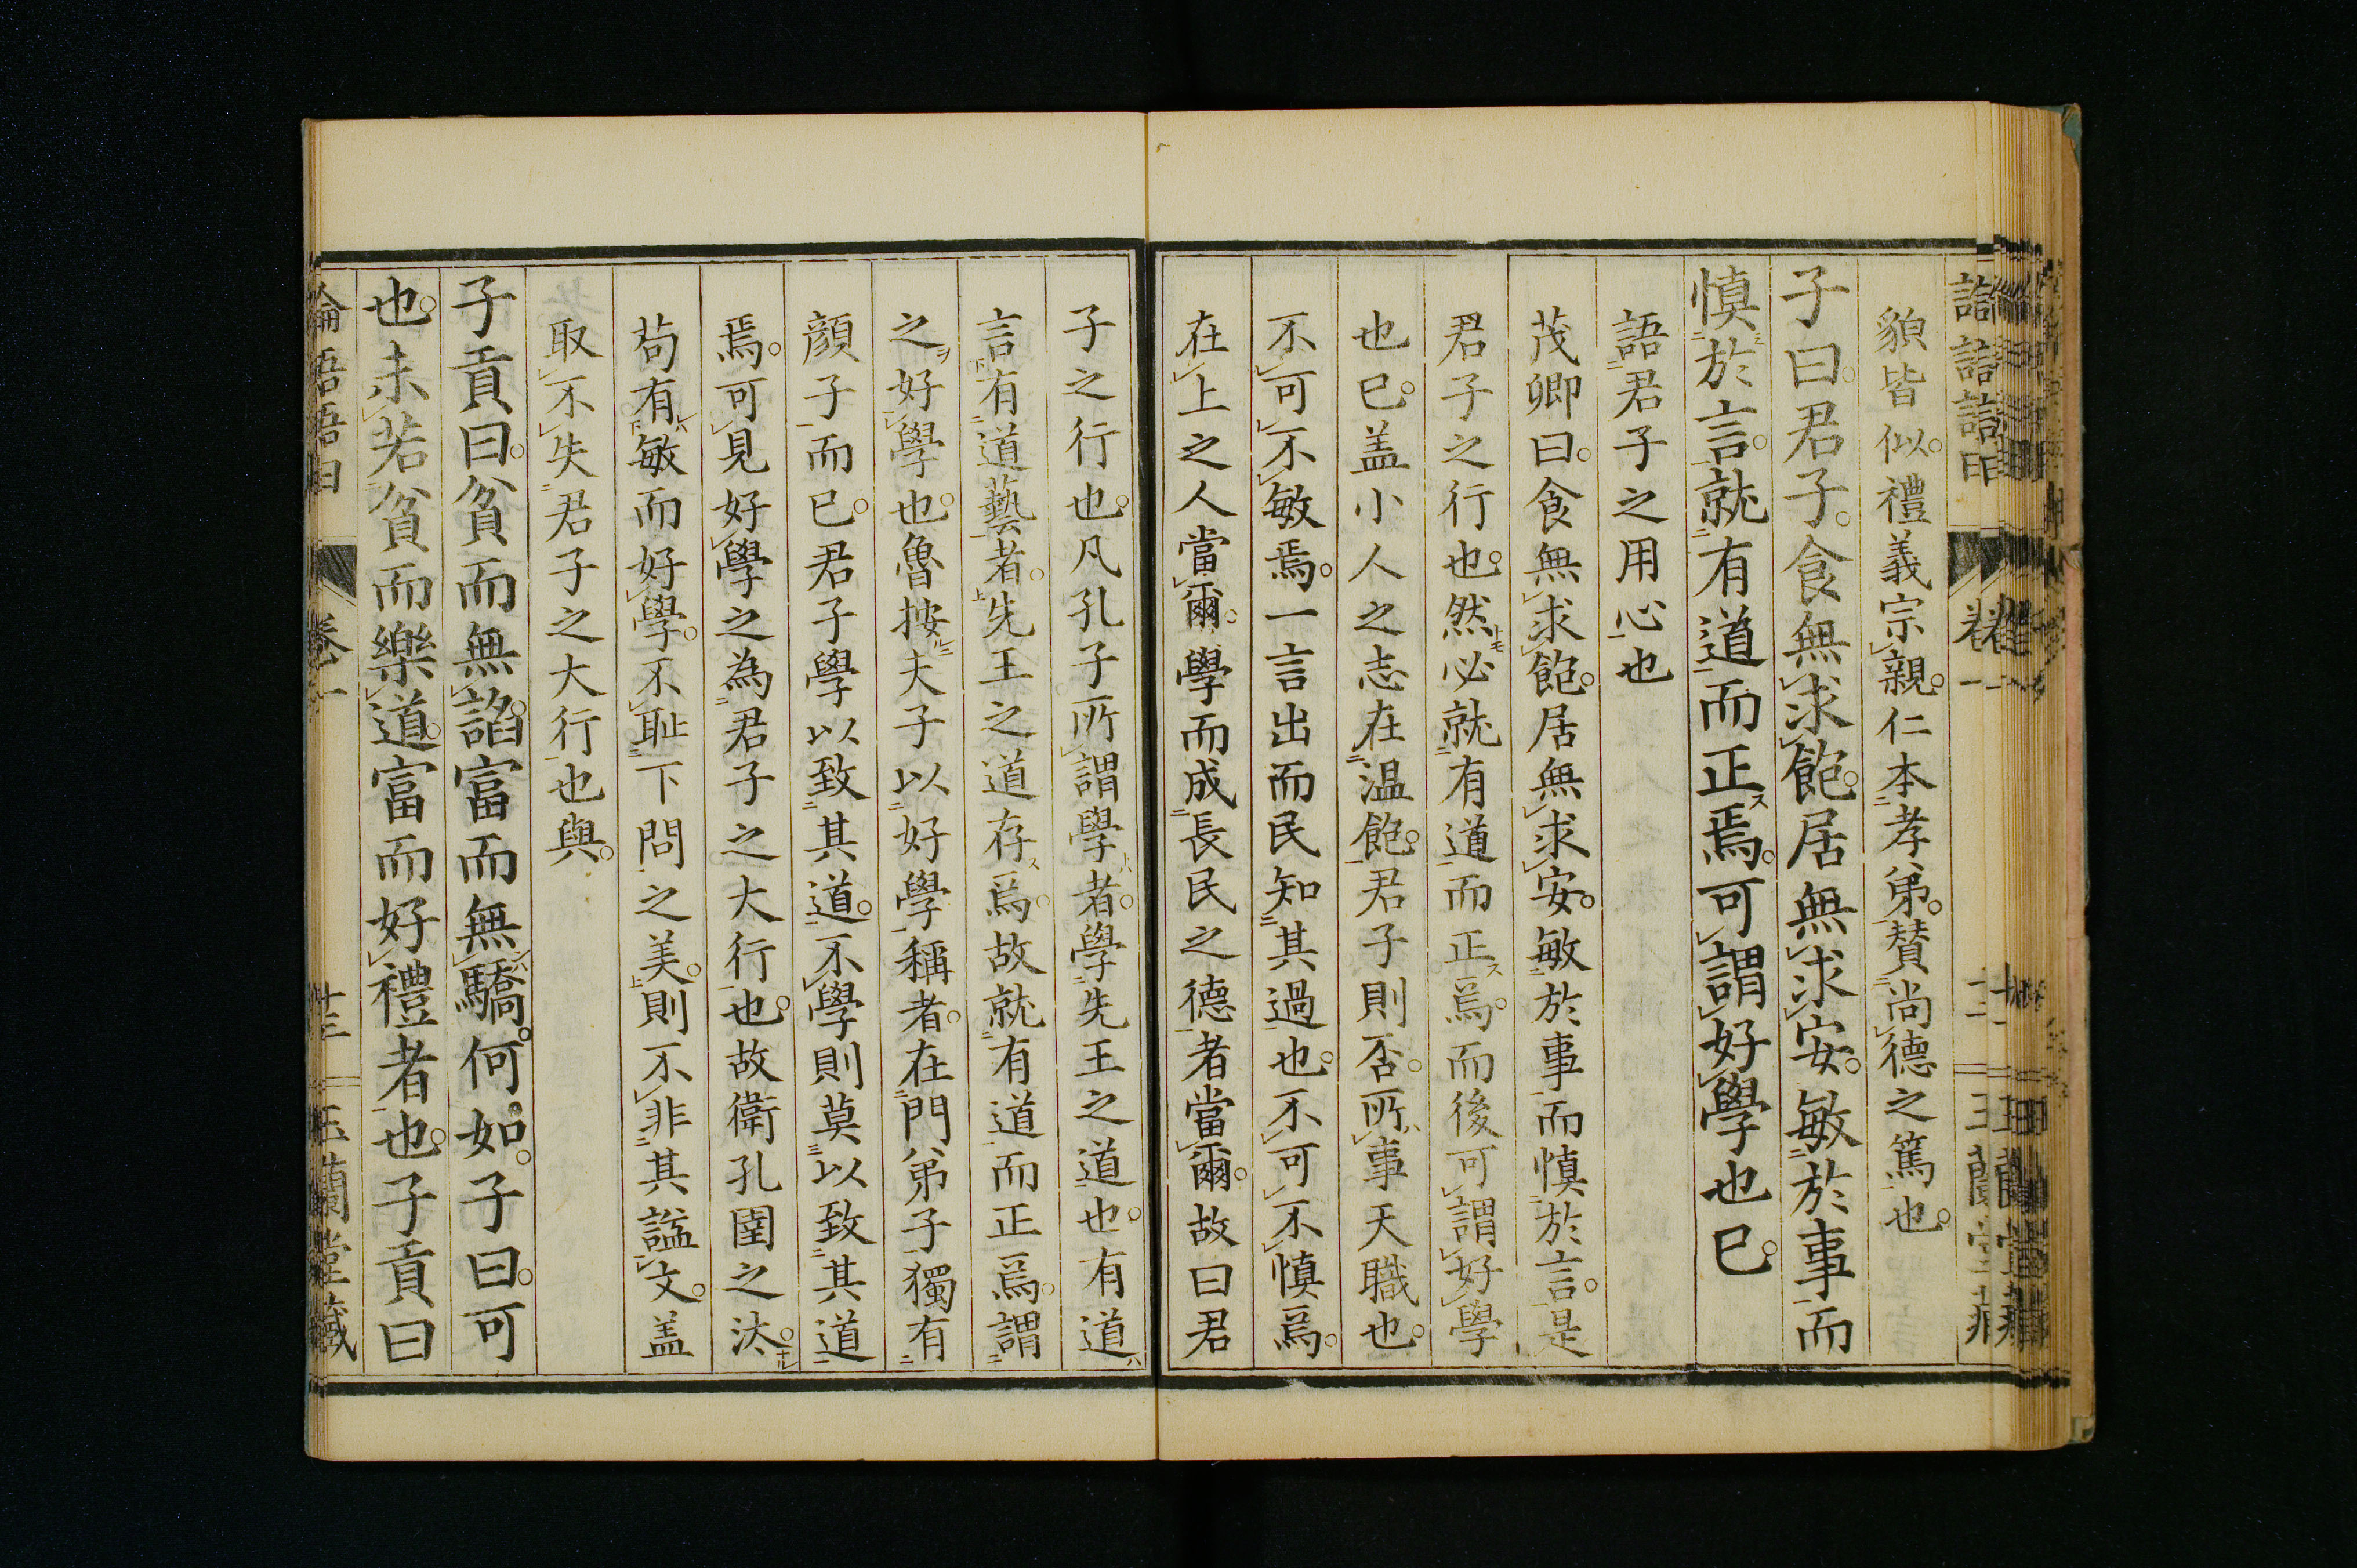 貌皆似。禮義宗親。仁本孝弟。賛尚德之篤也。
子曰。君子。食無求飽。居無求安。敏於事而
慎於言。就有道而正焉。可謂好學也已。
語君子之用心也
茂卿曰。食無求飽。居無求安。敏於事而慎於言。是
君子之行也。然必就有道而正焉。而後可謂好學
也已。盖小人之志在温飽。君子則否。所事天職也。
不可不敏焉。一言出而民知其過也。不可不慎焉。
在上之人當爾。學而成長民之德者當爾。故曰君
子之行也。凡孔子所謂學者。學先王之道也。有道
言有道藝者。先王之道存焉。故就有道而正焉。謂
之好學也。魯按夫子以好學稱者。在門弟子獨有
顔子而已。君子學以致其道。不學則莫以致其道
焉。可見好學之為君子之大行也。故衛孔圉之汰。
苟有敏而好學。不恥下問之美。則不非其諡文。盖
取不失君子之大行也與。
子貢曰。貧而無諂。富而無驕。何如。子曰。可
也。未若貧而樂道。富而好禮者也。子貢曰
卷一
十三
玉蘭堂藏